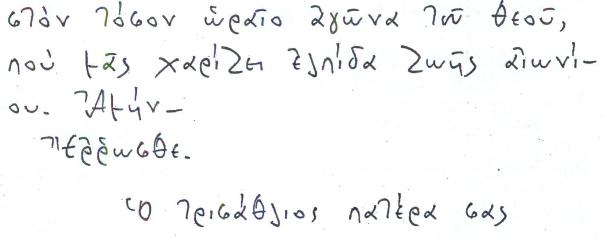 στὸν τόσον ὡραῖο ἀγῶνα τοῦ Θεοῦ,
ποὺ μᾶς χαρίζει ἐλπίδα ζωῆς αἰωνί-
ου. Ἀμήν-
Ἔῤῥωσθε.
Ὁ τρισάθλιος πατέρα σας